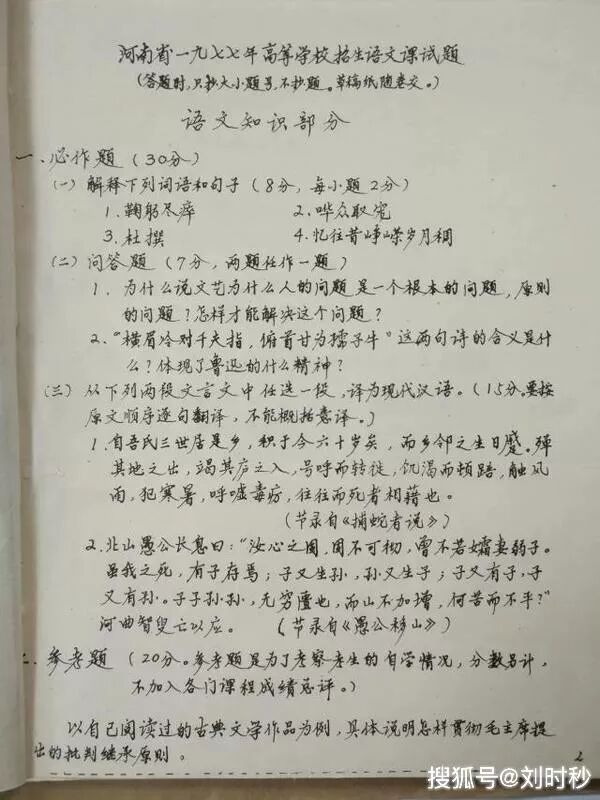 河南省一九七七年高等学校招生语文课试题
(答题时,只抄大小题号,不抄题。草稿纸随卷交。)
语文知识部分
一、必作题(30分)
(一)解释下列词语和句子(8分,每小题2分)
1.鞠躬尽瘁 2.哗众取宠
3.杜撰 4.忆往昔峥嵘岁月稠
(二)问答题(7分,两题任作一题)
1.为什么说文艺为什么人的问题是一个根本的问题,原则
的问题?怎样才能解决这个问题?
2."横眉冷对千夫指,俯首甘为孺子牛"这两句诗的含义是什
么?体现了鲁迅的什么精神?
(三)从下列两段文言文中任选一段,译为现代汉语。(15分。要按
原文顺序逐句翻译,不能概括意译。)
1.自吾氏三世居是乡,积于今六十岁矣,而乡邻之生日蹙。殚
其地之出,竭其庐之入,号呼而转徙,饥渴而顿踣,触风
雨,犯寒暑,呼嘘毒疠,往往而死者相藉也。
(节录自《捕蛇者说》)
2.北山愚公长息曰:"汝心之固,固不可彻,曾不若孀妻弱子。
虽我之死,有子存焉;子又生孙,孙又生子;子又有子,子
又有孙。子子孙孙,无穷匮也,而山不加增,何苦而不平?"
河曲智叟亡以应。 (节录自《愚公移山》)
二、参考题(20分。参考题是为了考察考生的自学情况,分数另计,
不加入各门课程成绩总评。)
以自己阅读过的古典文学作品为例,具体说明怎样贯彻毛主席提
出的批判继承原则。
2
搜狐号@刘时秒